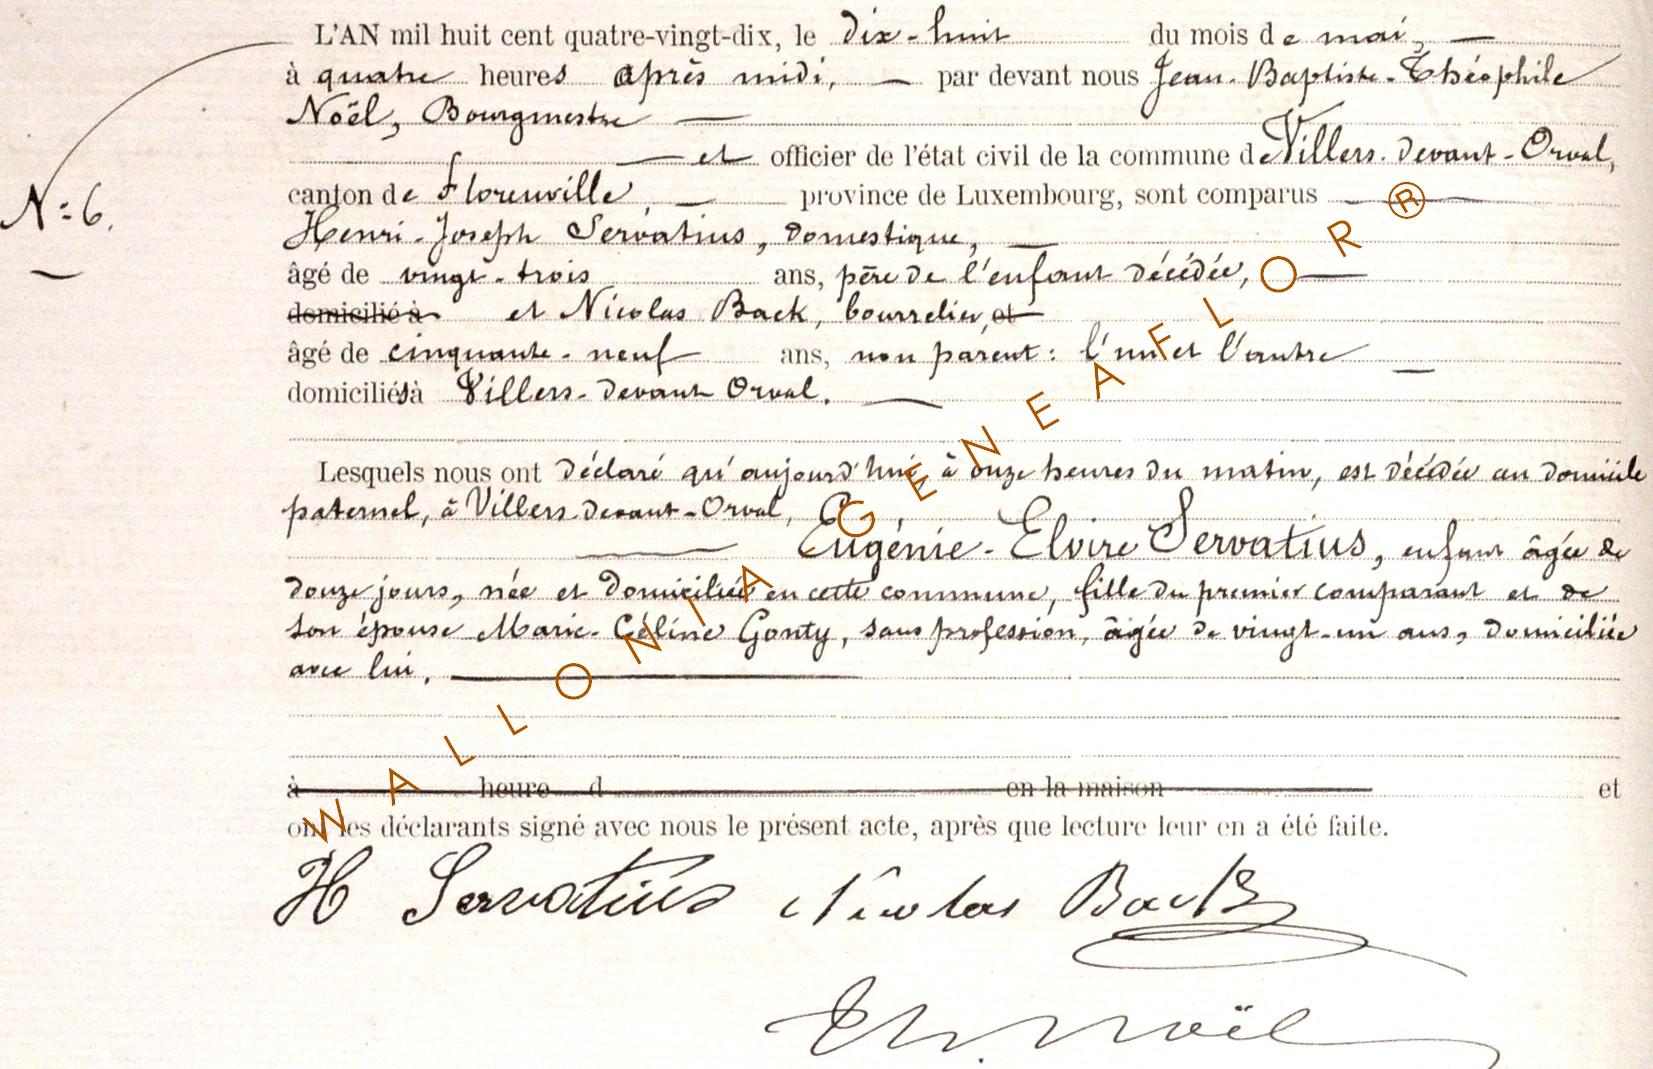 L'AN mil huit cent quatre-vingt-dix, le dix-huit du mois de mai,
à quatre heures après midi, par devant nous Jean-Baptiste-Théophile
Noël, Bourgmestre
et officier de l'état civil de la commune de Villers-devant-Orval,
N° 6.
canton de Florenville, province de Luxembourg, sont comparus
Henri-Joseph Servatius, domestique,
âgé de vingt-trois ans, père de l'enfant décédée,
domicilié à et Nicolas Back, bourrelier, et
âgé de cinquante-neuf ans, non parent: l'un et l'autre
domiciliés à Villers-devant Orval.
Lesquels nous ont déclaré qu'aujourd'hui, à onze heures du matin, est décédée au domicile
paternel, à Villers-devant-Orval,
Eugénie-Elvire Servatius, enfant âgée de
douze jours, née et domiciliée en cette commune, fille du premier comparant et de
son épouse Marie-Céline Gonty, sans profession, âgée de vingt-un ans, domiciliée
avec lui.
à heure d en la maison et
ont les déclarants signé avec nous le présent acte, après que lecture leur en a été faite.
H Servatius Nicolas Back
Th. Noël
WALLONIA GENEAFLOR®